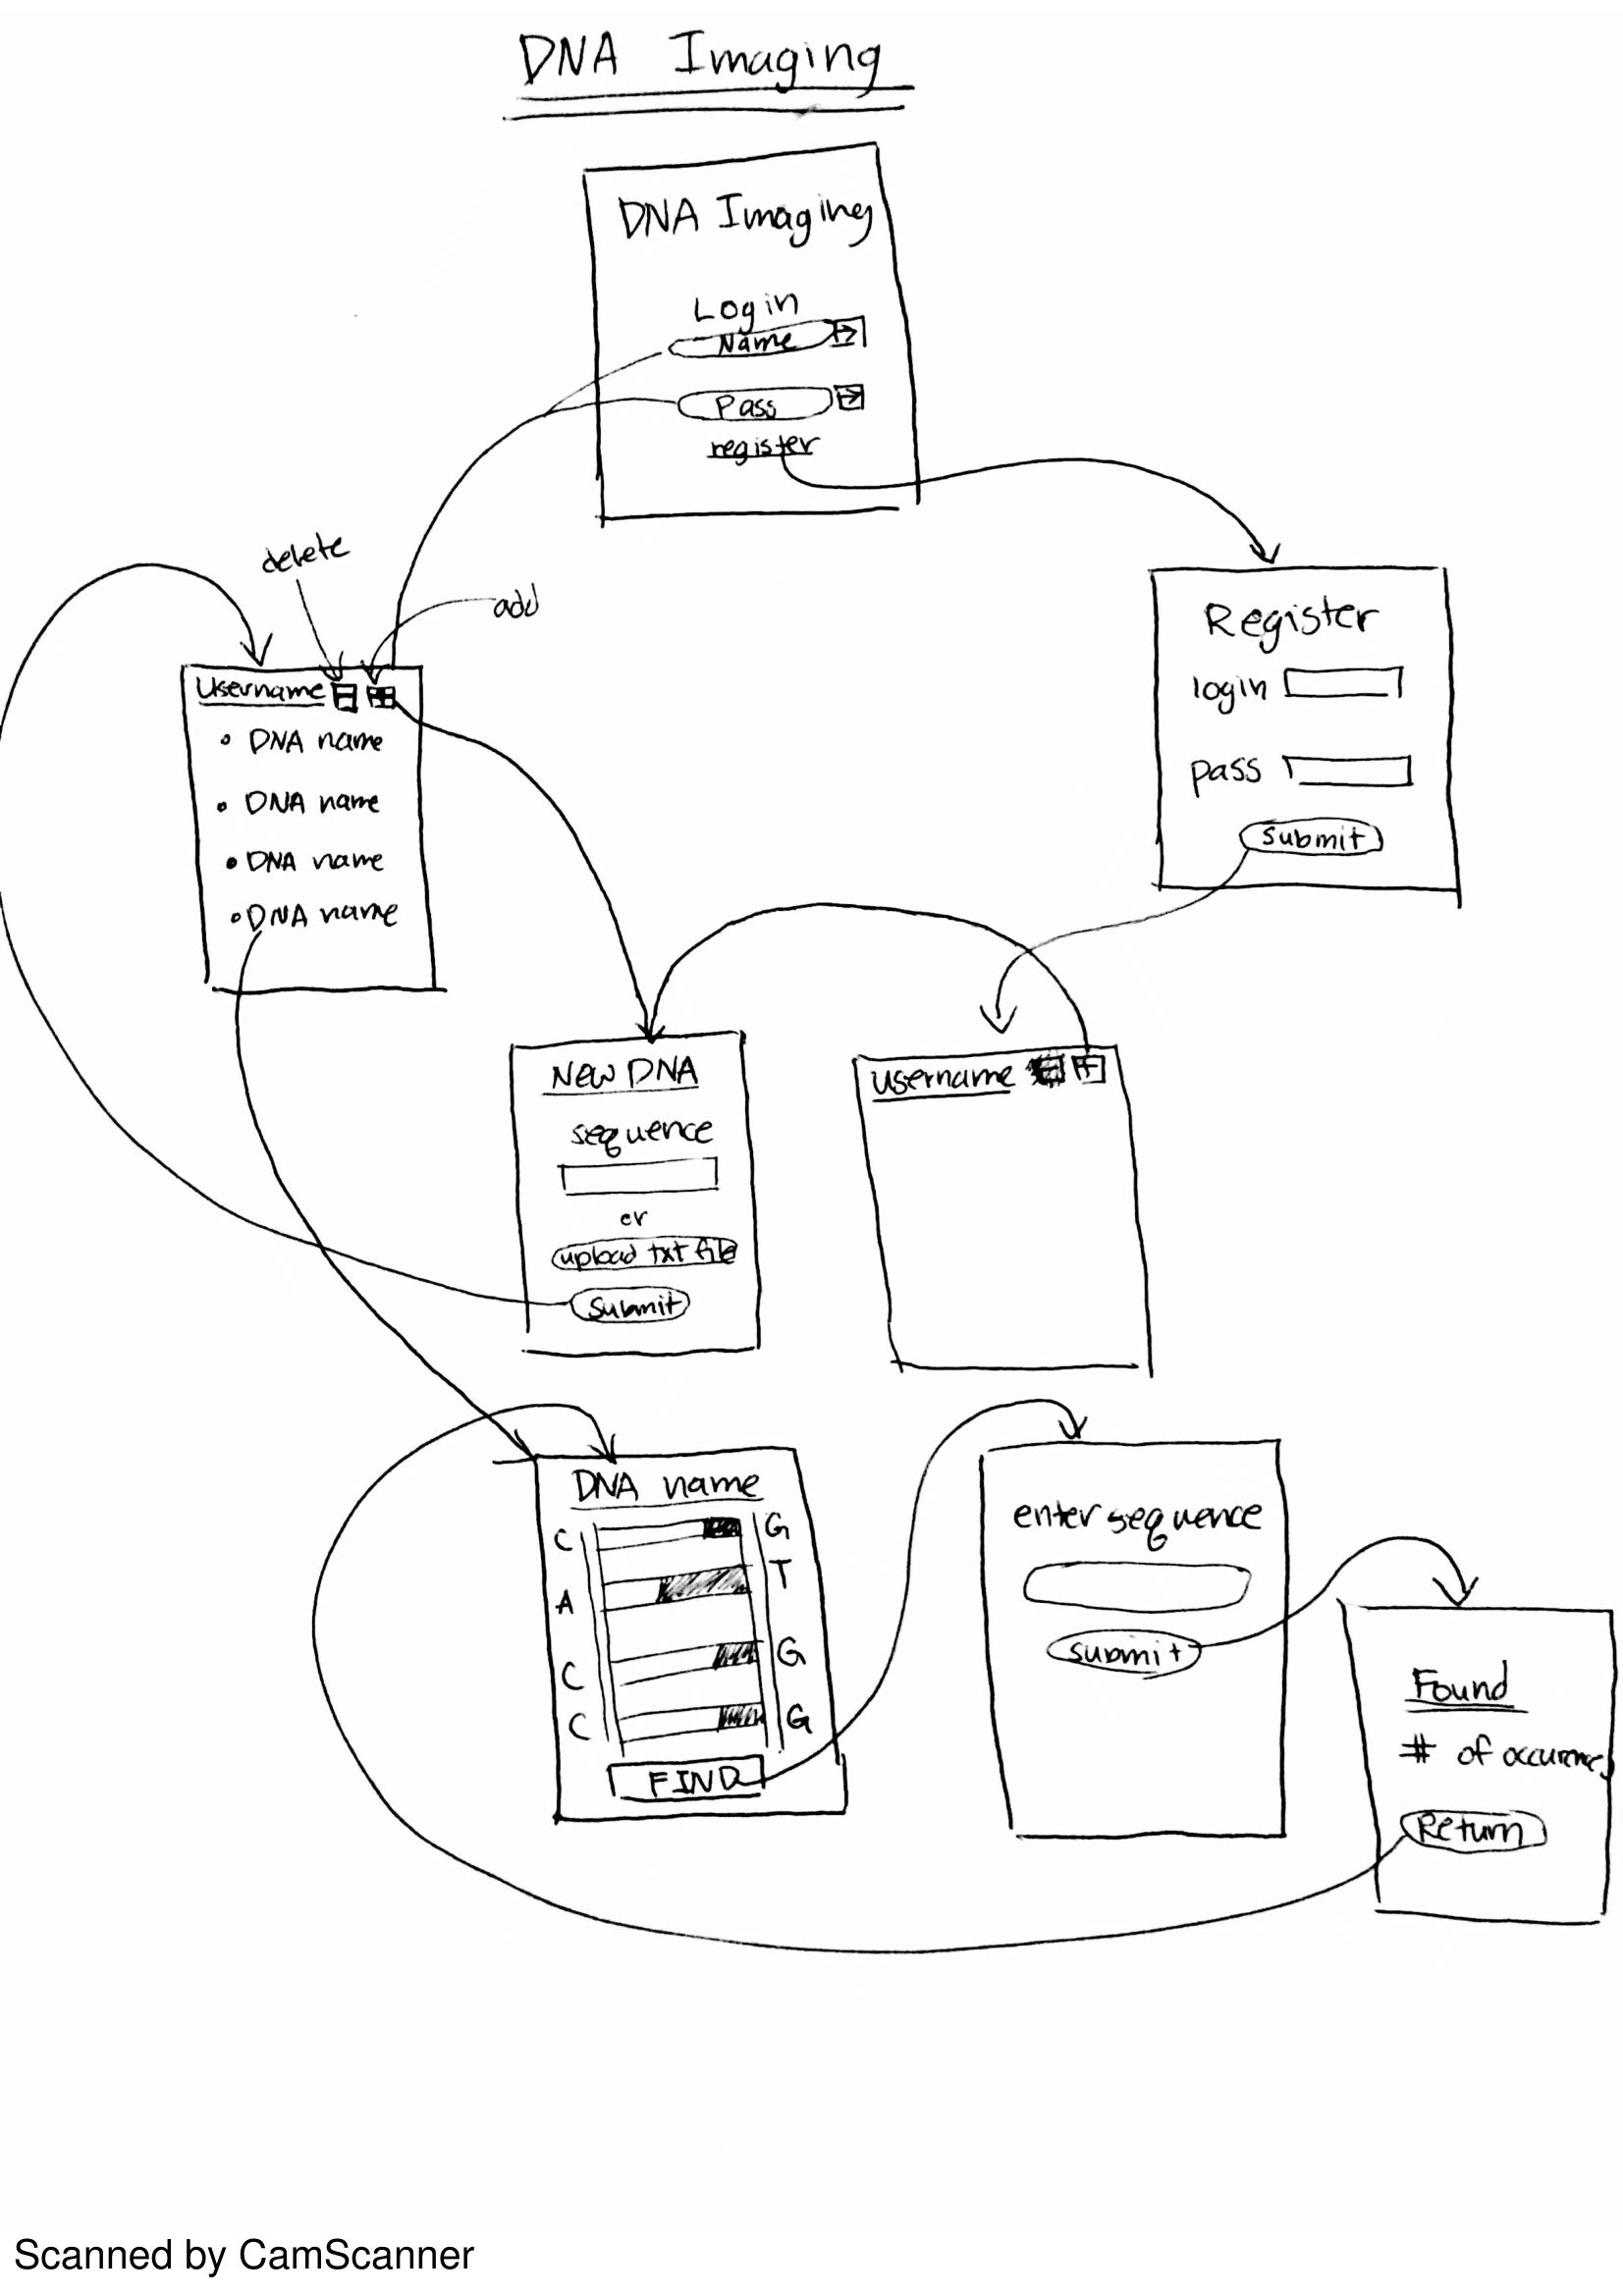 DNA Imaging
DNA Imaging
Login
Name
Pass
register
delete
add
Username
DNA name
DNA name
DNA name
DNA name
Register
login
pass
submit
New DNA
sequence
or
upload txt file
submit
username
DNA name
C G
A T
C G
C G
FIND
enter sequence
submit
Found
# of occurences
Return
Scanned by CamScanner